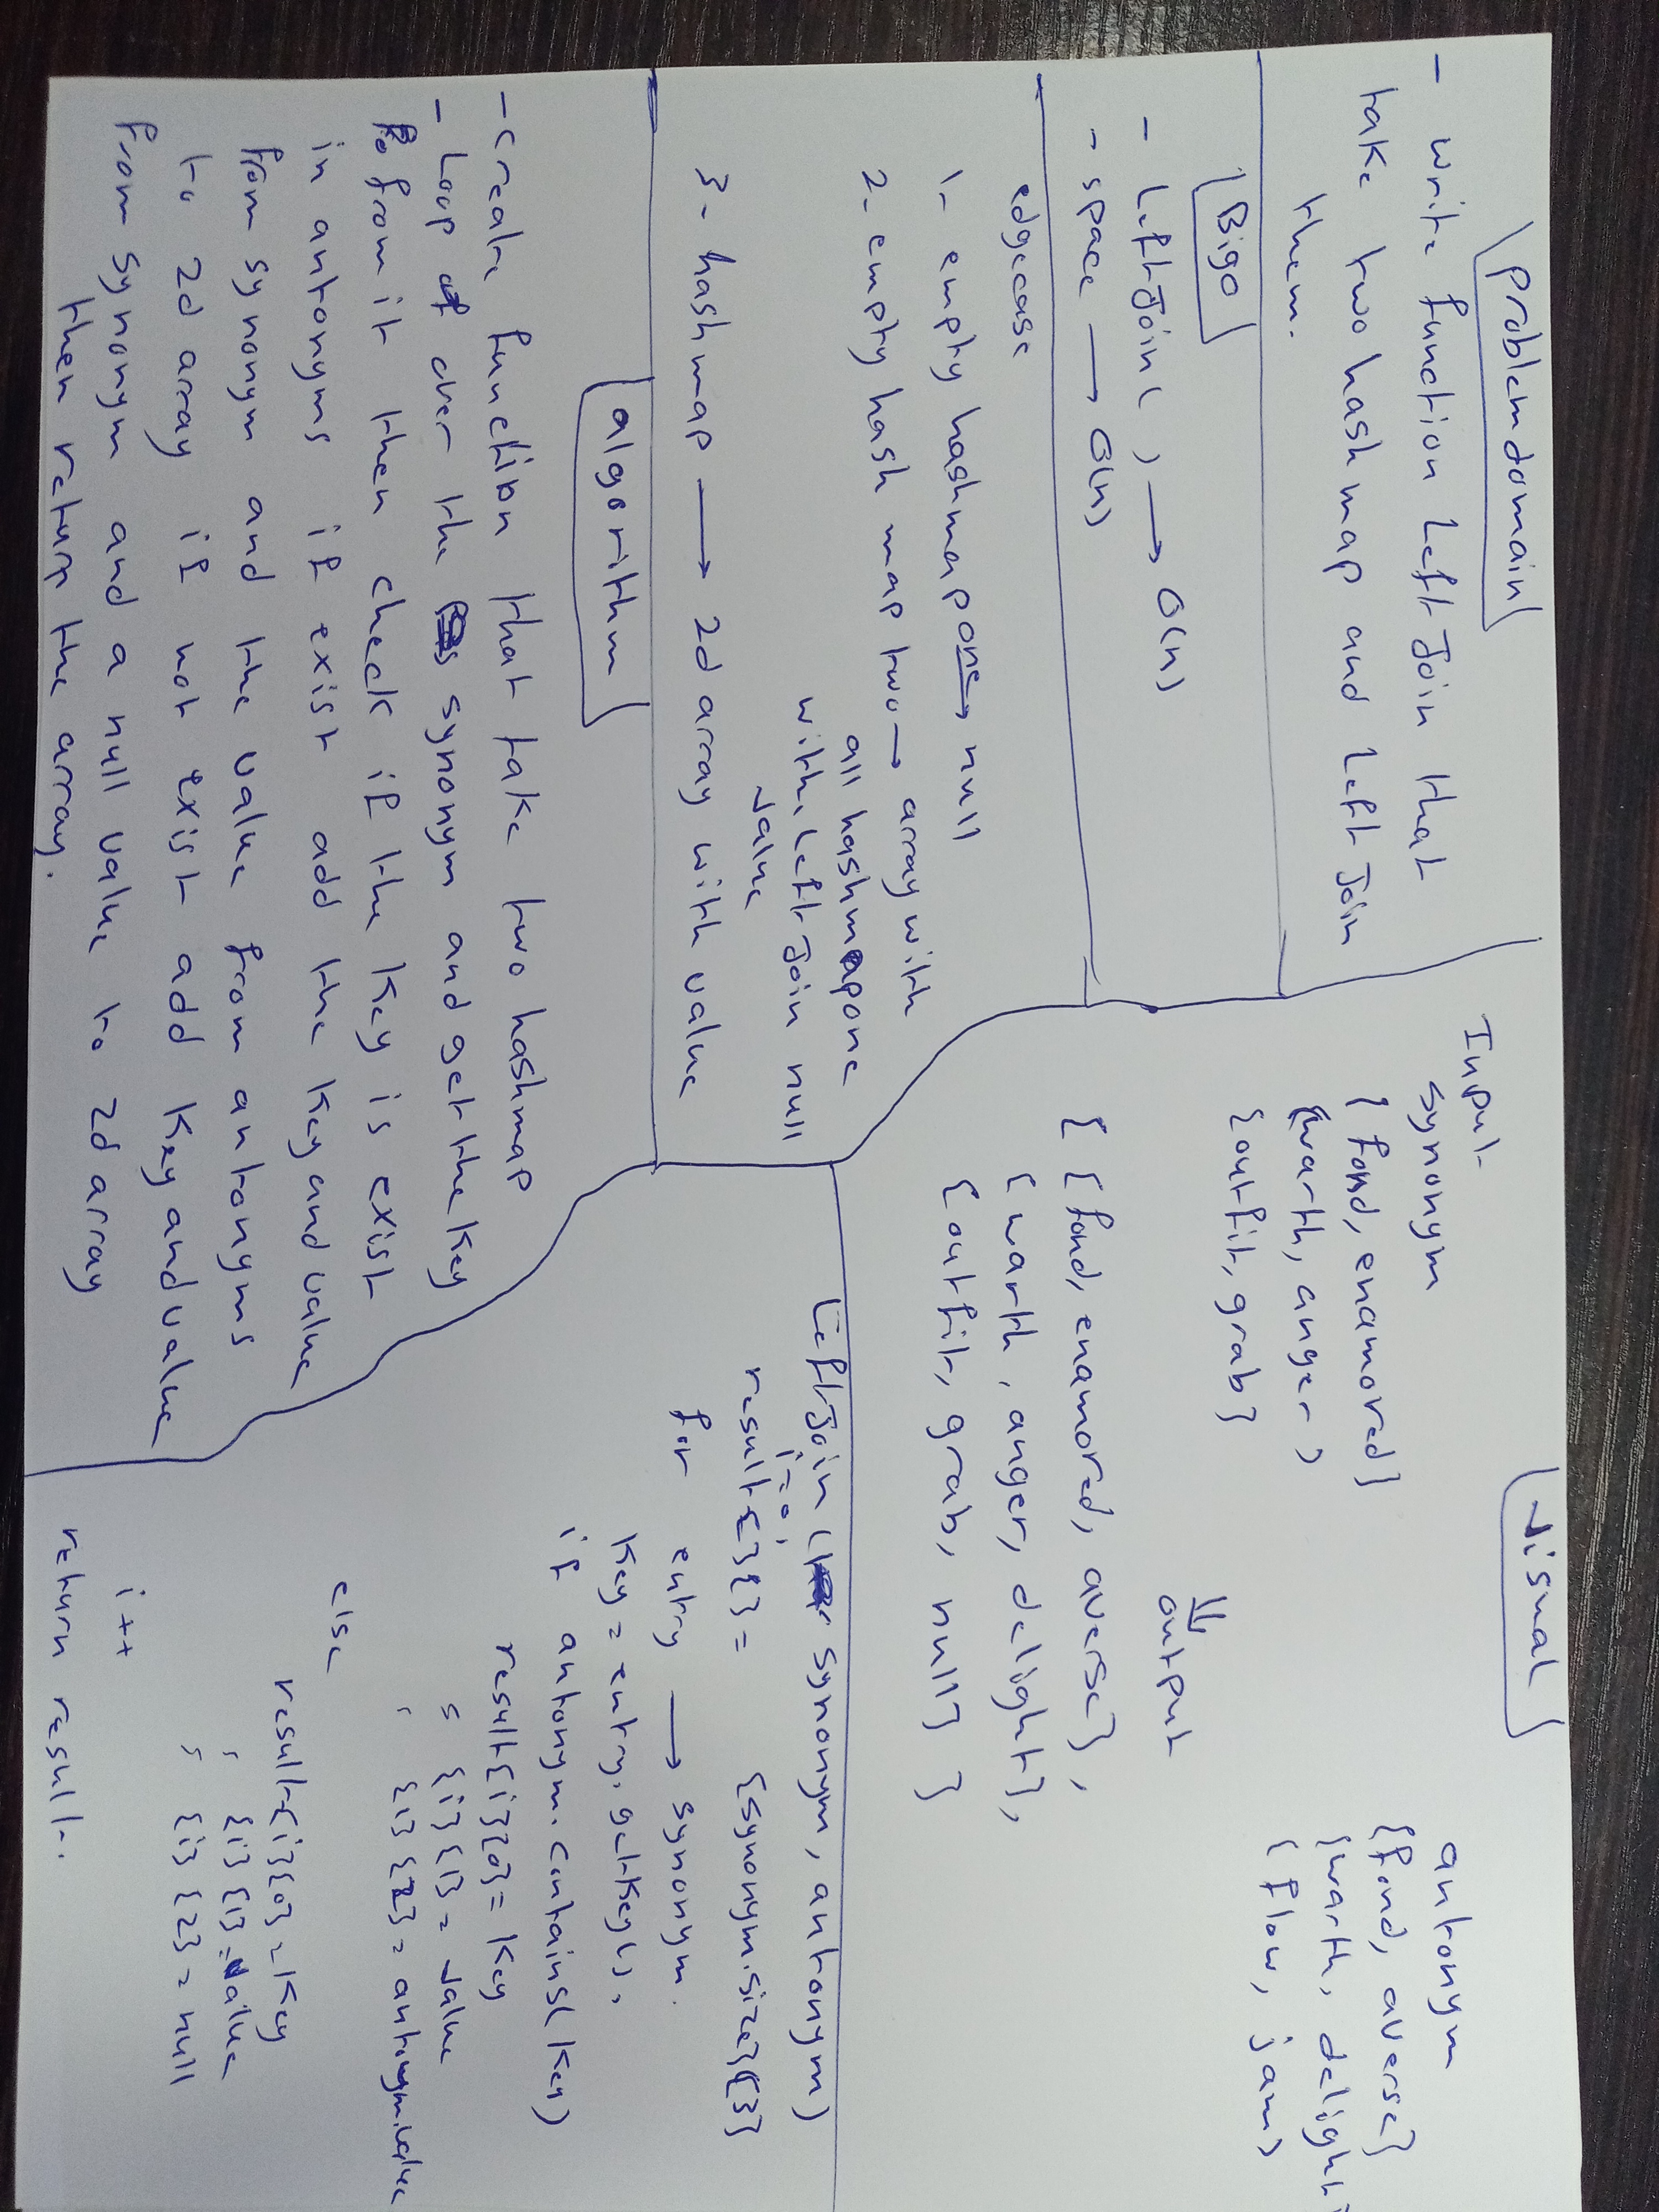 problem domain
- write function Left Join that
take two hash map and Left Join
them.
Bigo
- Left Join ( ) → O(n)
- space → O(n)
edgecase
1- empty hashmap one → null
2- empty hash map two → array with
all hashmap one
with Left Join null
value
3- hashmap → 2d array with value
algorithm
- create function that take two hashmap
- Loop over the synonym and get the key
from it then check if the key is exist
in antonyms if exist add the key and value
from synonym and the value from antonyms
to 2d array if not exist add key and value
from synonym and a null value to 2d array
then return the array.
visual
Input
synonym
{ fond, enamored }
{ warth, anger )
{ outfit, grab }
antonym
{ fond, averse }
{ warth, delight }
( flow, jam )
⇓
output
{ { fond, enamored, averse } ,
{ warth , anger, delight } ,
{ outfit, grab, null } }
Left Join ( synonym, antonym )
i = 0 ,
result { } { } = { synonym.size } { 3 }
for entry → synonym.
key = entry. getkey ( ) ,
if antonym. contains ( key )
result { i } { 0 } = key
{ i } { 1 } = value
{ i } { 2 } = antonym.value
else
result { i } { 0 } = key
{ i } { 1 } = value
{ i } { 2 } = null
i ++
return result.